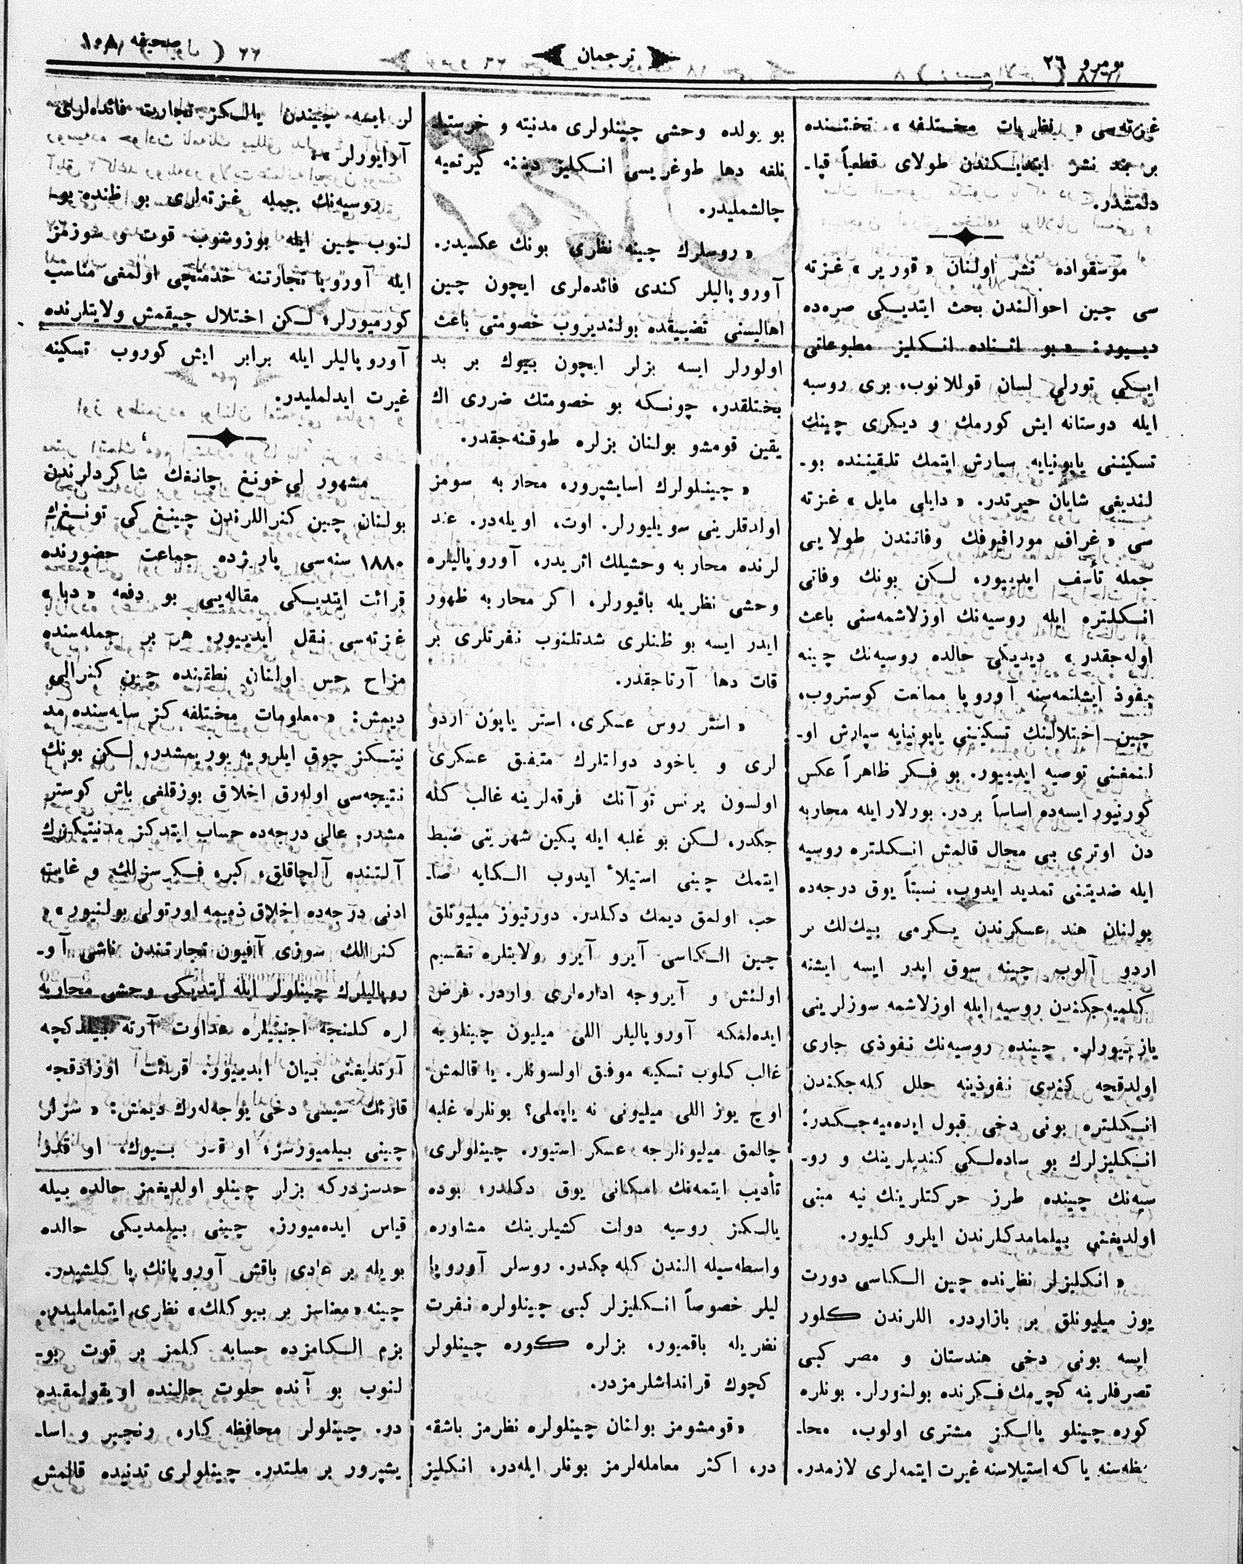 نومرو ٢٦
ترجمان
صحيفه ١٠٨
غزته‌سی « نظريات مختلفه » تختنده
بر بند نشر ايتديكندن طولای قطعياً قپا‍ـ
دلمشدر.
موسقواده نشر اولنان « قوریر » غزته
سی چين احوالندن بحث ايتديكی صره‌ده
دييور: « بو اثناده انكليز مطبوعاتی
ايكی تورلی لسان قوللانوب، بری روسيه
ايله دوستانه ايش كورمك و ديكری چينك
تسكيننی ياپونيايه سپارش ايتمك تلقيننده بو‍ـ
لنديغی شايان حيرتدر. « دايلی مايل » غزته
سی « غراف موراويوفك وفاتندن طولايی
جمله تأسف ايدييور، لكن بونك وفاتی
انكلتره ايله روسيه‌نك اوزلاشمه‌سنی باعث
اوله‌جقدر » ديديكی حالده روسيه‌نك چينه
نفوذ ايشلتمه‌سنه آوروپا ممانعت كوستروب،
چين اختلالنك تسكيننی ياپونيايه سپارش او‍ـ
لنمغنی توصيه ايدييور. بو فكر ظاهراً عكس
كورنيور ايسه‌ده اساساً بردر. بورلار ايله محاربه
دن اوتری بی مجال قالمش انكلتره روسيه
ايله ضديتنی تمديد ايدوب، نسبتاً يوق درجه‌ده
بولنان هند عسكرندن يكرمی بيك‌لك بر
اردو آلوب چينه سوق ايدر ايسه ايشنه
كلميه‌جكندن روسيه ايله اوزلاشمه سوزلرينی
يازييورلر. چينده روسيه‌نك نفوذی جاری
اولدقچه كندی نفوذينه خلل كله‌جكندن
انكلتره بونی دخی قبول ايده‌ميه‌جكدر؛
انكليزلرك بو ساده‌لكی كنديلرينك و رو‍ـ
سيه‌نك چينده طرز حركتلرينك نيه مبنی
اولديغنی بيلمامدكلرندن ايلرو كليور.
« انكليزلر نظرنده چين الكاسی دورت
يوز ميليونلق بر بازاردر. اللرندن كلور
ايسه بونی دخی هندستان و مصر كبی
تصرفلرينه كچرمك فكرنده بولنورلر. بونلره
كوره چينلو يالكز مشتری اولوب، محا‍ـ
فظه‌سنه ياكه استيلاسنه غيرت ايتمه‌لری لازمدر.
بو يولده وحشی چينلولری مدنيته و خرستيا
نلغه دها طوغريسی انكليز ديننه كيرتميه
چالشمليدر.
« روسلرك چينه نظری بونك عكسيدر.
آوروپاليلر كندی فائده‌لری ايچون چين
اهاليسنی تضييقده بولنديروب خصومتی باعث
اولورلر ايسه بزلر ايچون بيوك بر بد
بختلقدر، چونكه بو خصومتك ضرری اك
يقين قومشو بولنان بزلره طوقنه‌جقدر.
« چينلولرك اسايشپرور، محاربه سومز
اولدقلرينی سويليورلر. اوت، اويله‌در. عند
لرنده محاربه وحشيلك اثريدر. آوروپاليلره
وحشی نظريله باقيورلر، اكر محاربه ظهور
ايدر ايسه بو ظنلری شدتلنوب نفرتلری بر
قات دها آرتاجقدر.
« استر روس عسكری، استر ياپون اردو
لری و ياخود دولتلرك متفق عسكری
اولسون پرنس توآنك فرقه‌لرينه غالب كله
جكدر، لكن بو غلبه ايله پكين شهرينی ضبط
ايتمك چينی استيلاً ايدوب الكايه صا‍ـ
حب اولمق ديمك دكلدر. دورتيوز ميليونلق
چين الكاسی آيرو آيرو ولايتلره تقسيم
اولنمش و آيروجه اداره‌لری واردر. فرض
ايده‌لمكه آوروپاليلر اللی ميليون چينلويه
غالب كلوب تسكينه موفق اولسونلر. يا قالمش
اوچ يوز اللی ميليونی نه ياپملی؟ بونلره غلبه
چالمق ميليونلرجه عسكر استيور. چينلولری
تأديب ايتمه‌نك امكانی يوق دكلدر؛ بوده
يالكز روسيه دولت كشيلرينك مشاوره
واسطه‌سيله الندن كله‌جكدر. روسلر آوروپا
ليلر خصوصاً انكليزلر كبی چينلولره نفرت
نظريله باقميور، بزلره كوره چينلولر
كچوك قرانداشلرمزدر.
« قومشومز بولنان چينلولره نظرمز باشقه
در، اكثر معامله‌لرمز بونلر ايله‌در، انكليز
لر ايسه چيندن يالكز تجارت فائده‌لری
آرايورلر »
روسيه‌نك جمله غزته‌لری بو ظنده بو‍ـ
لنوب چين ايله بوزوشوب قوت و سوزمز
ايله آوروپا تجارتنه خدمتچی اولمغی مناسب
كورميورلر؛ لكن اختلال چيقمش ولايتلرنده
آوروپاليلر ايله برابر ايش كوروب تسكينه
غيرت ايدلمليدر.
مشهور لی خونغ چانغك شاكردلرندن
بولنان چين كنراللرندن چينغ كی تونغك
١٨٨٠ سنه‌سی پاريزده جماعت حضورنده
قرائت ايتديكی مقاله‌يی بو دفعه « دبا »
غزته‌سی نقل ايدييور. هر بر جمله‌سنده
مزاح حس اولنان نطقنده چين كنرالی
ديمش: « معلومات مختلفه كز سايه‌سنده مد
نيتكز چوق ايلرويه يوريمشدر، لكن بونك
نتيجه‌سی اوله‌رق اخلاق بوزقلغی باش كوستر
مشدر. عالی درجه‌ده حساب ايتدكز مدنيتكزك
آلتنده آلچاقلق، كبر، فكرسزلك و غايت
ادنی درجه‌ده اخلاق ذميمه اورتولی بولنيور »
كنرالك سوزی آفيون تجارتندن ناشی آو‍ـ
روپاليلرك چينلولر ايله ايتديكی وحشی محاربه
لره كلنجه اجنبيلره عداوت آرته بيلدكچه
آرتديغنی بيان ايدييور. قرائت اوزادقجه
قارتك سيسی دخی يوجه‌له‌رك ديمش: « سزلر
چينی بيلميورسز؛ او قدر بيوك، او قدر
حدسزدركه بزلر چينلو اولديغمز حالده بيله
قياس ايده‌ميورز. چينی بيلمديكی حالده
بويله بر عادی باقش آوروپانك يا كلشيدر.
چينه « معناسز بر بيوكلك » نظری ايتماملیدر.
بزم الكامزده حسابه كلمز بر قوت بو‍ـ
لنوب بو آنده خلوت حالنده اويقولمقده
در. چينلولر محافظه كار، رنجبر و اسا‍ـ
يشپرور بر ملتدر. چينلولری تدنيده قالمش